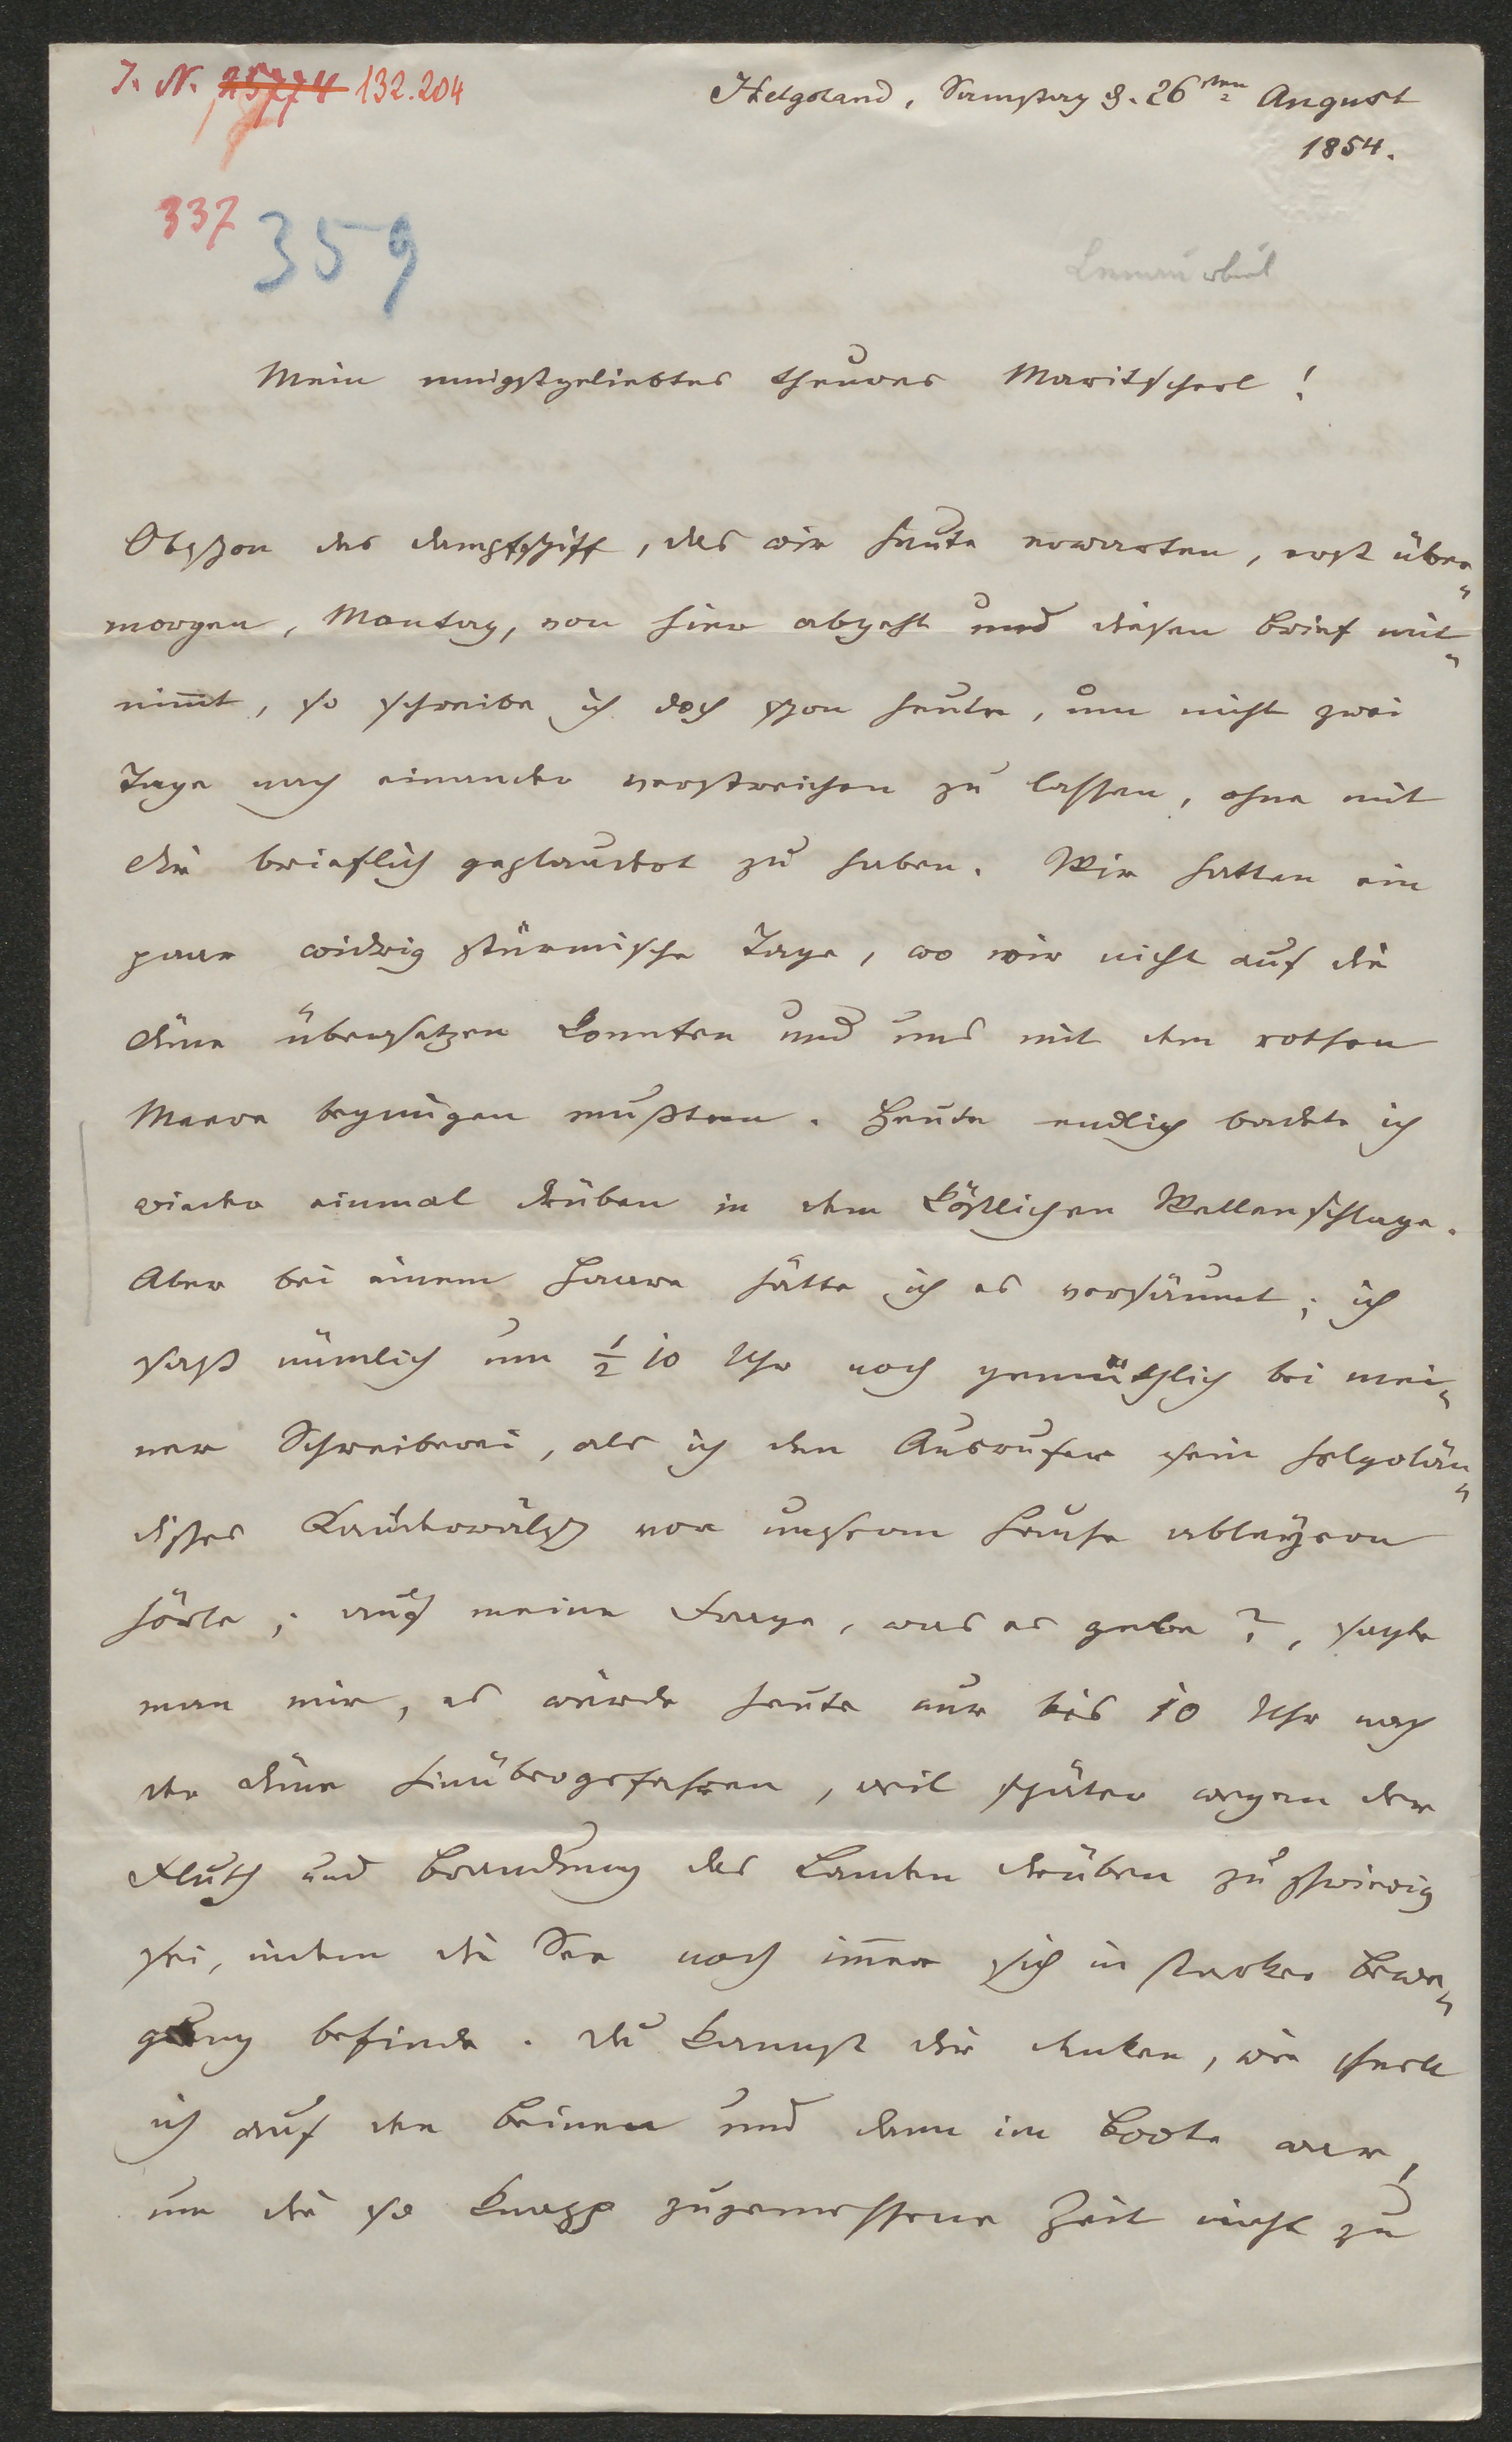 I. N. 25774 132.204
Helgoland, Samstag d. 26sten August
1854.
337
359
Mein innigstgeliebtes theures Maritscherl!
Obschon das Dampfschiff, das wir heute erwarten, erst über„
morgen, Montag, von hier abgeht und diesen Brief mit„
nim̅t, so schreibe ich doch schon heute, um nicht zwei
Tage nach einander verstreichen zu lassen, ohne mit
dir brieflich geplaudert zu haben. Wir hatten ein
paar widrig stürmische Tage, wo wir nicht auf die
Düne übersetzen konnten und uns mit dem rothen
Meere begnügen mußten. Heute endlich badete ich
wieder einmal drüben in dem köstlichen Wellenschlage.
Aber bei einem Haare hätte ich es versäumt; ich
saß nämlich um ½ 10 Uhr noch gemüthlich bei mei„
ner Schreiberei, als ich den Ausrufer sein helgolän„
disches Kauderwälsch vor unserem Hause ableyern
hörte; auf meine Frage, was es gebe?, sagte
man mir, es würde heute nur bis 10 Uhr nach
der Düne hinübergefahren, weil später wegen der
Fluth und Brandung das Landen drüben zu schwierig
sei, indem die See noch im̅er sich in starker Bewe„
gung befinde. Du kannst dir denken, wie schnell
ich auf den Beinen und dann im Boote war,
um die so knapp zugemessene Zeit nicht zu